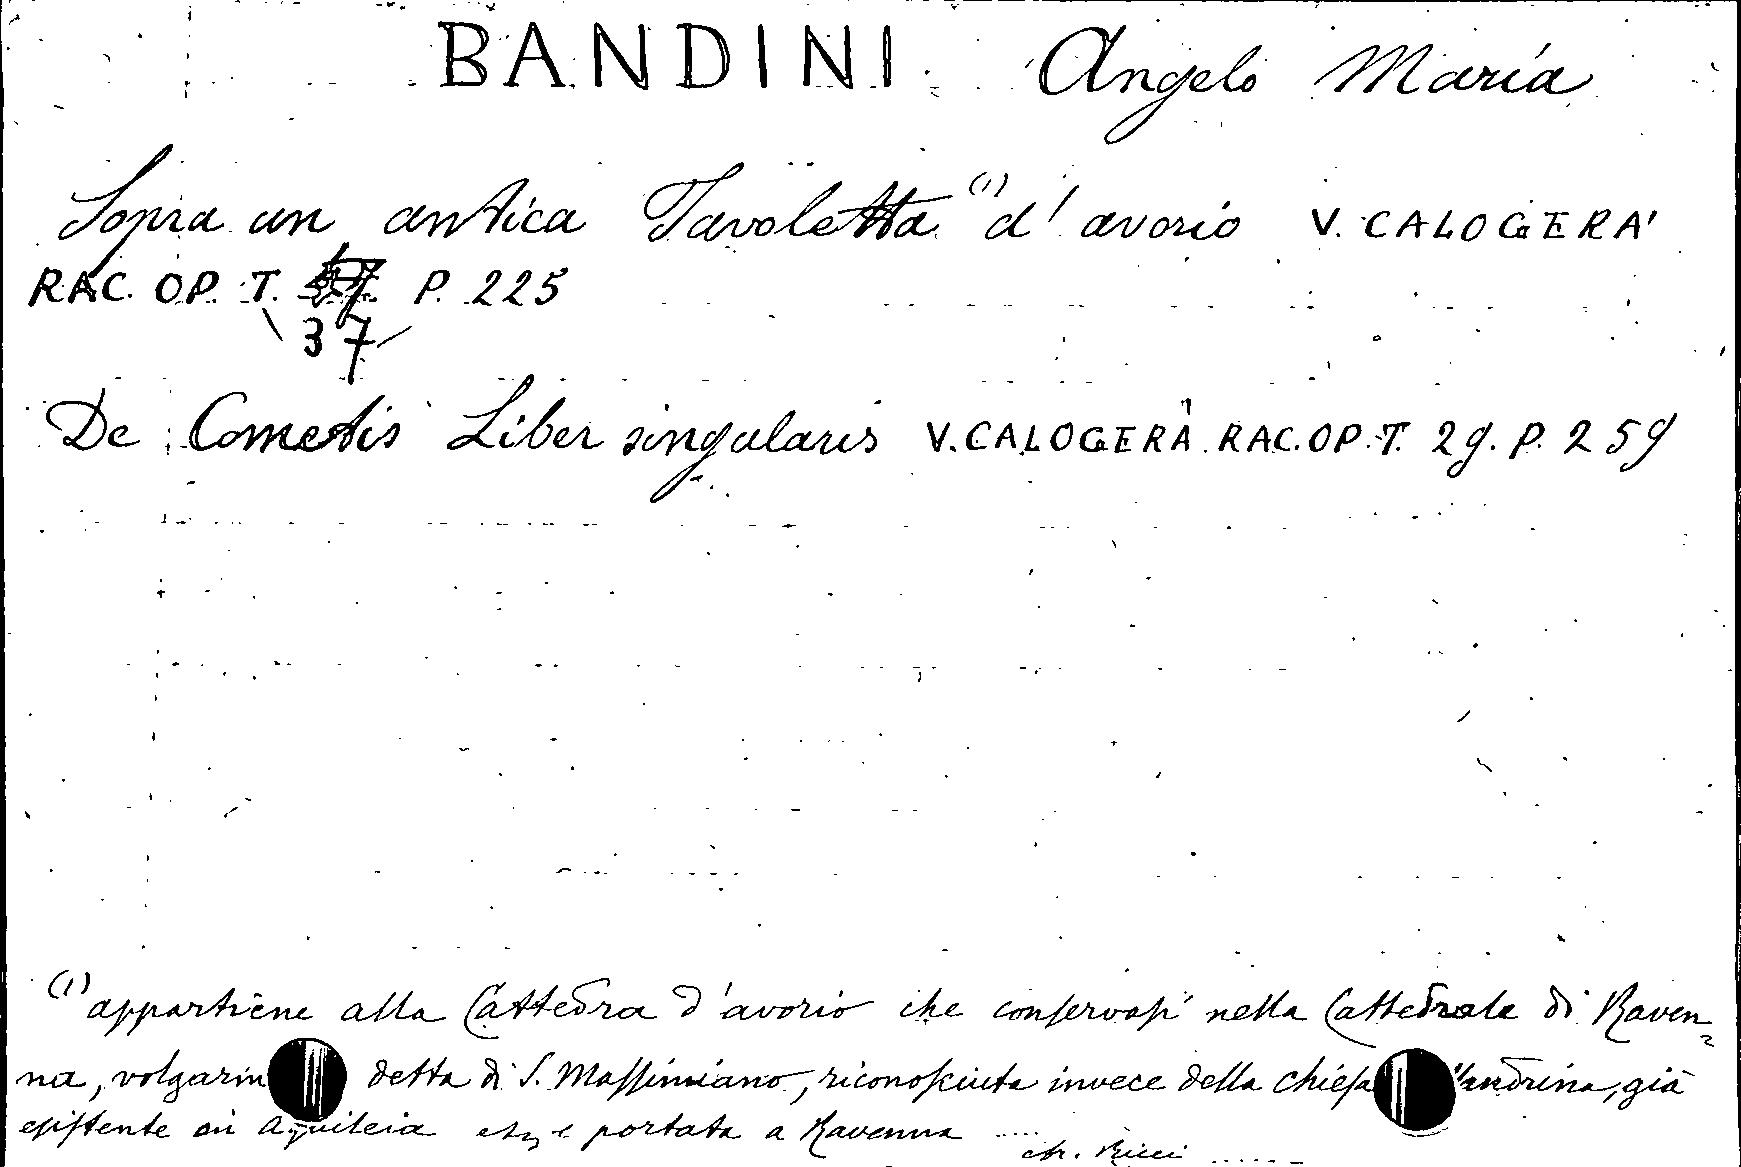 BANDINI Angelo Maria
Sopra un antica Tavoletta (1) d'avorio V. CALOGERA'
RAC. OP. T. 37 P. 225
De Cometis Liber singularis V. CALOGERÀ RAC. OP. T. 29. P. 259
(1) appartiene alla Cattedra d'avorio che conservasi nella Cattedrale di Raven-
na, volgarm detta di S. Massimiano, riconosciuta invece della chiesa andrina, già
esistente in Aquileia e portata a Ravenna ....
Ricci .....